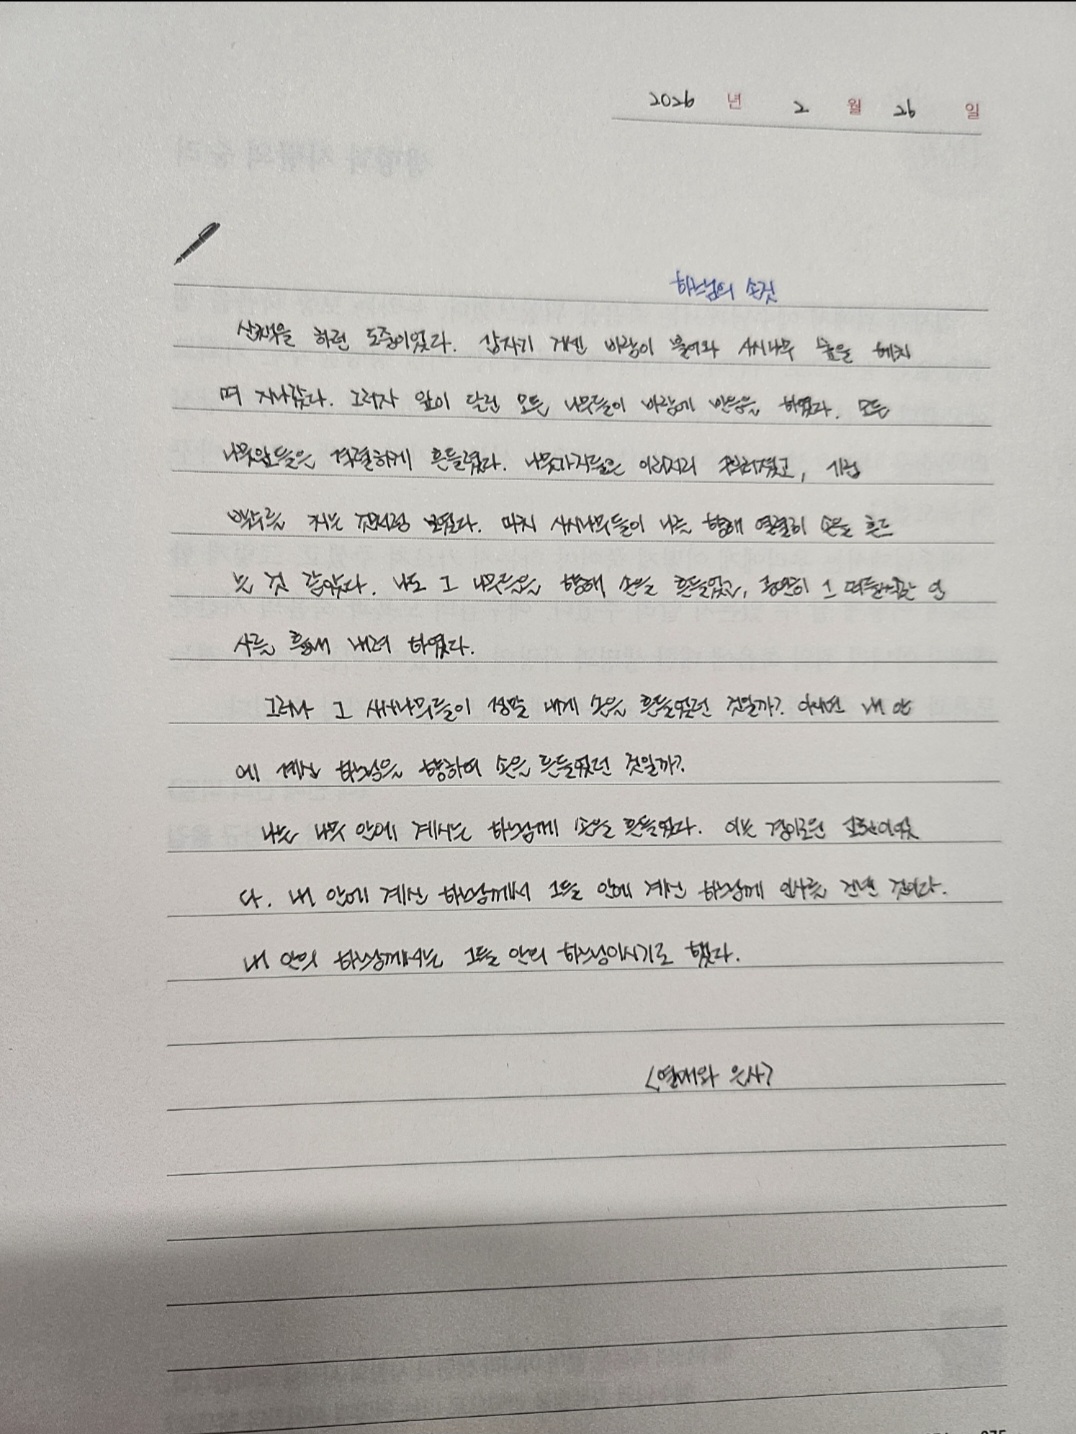 2026 년 2 월 26 일
하느님의 손짓
산책을 하던 도중이었다. 갑자기 거센 바람이 불어와 사시나무 숲을 헤치
며 지나갔다. 그러자 잎이 달린 모든 나무들이 바람에 반응을 하였다. 모든
나뭇잎들은 격렬하게 흔들렸다. 나뭇가지들은 이리저리 구부러졌고,
박수를 치는 것처럼 보였다. 마치 사시나무들이 나를 향해 열렬히 손을 흔드
는 것 같았다. 나도 그 나무들을 향해 손을 흔들었고, 공연히 그 떠들썩한 인
사를 흉내 내려 하였다.
그러나 그 사시나무들이 정말 내게 손을 흔들었던 것일까? 아니면 내 안
에 계신 하느님을 향하여 손을 흔들었던 것일까?
나는 나무 안에 계시는 하느님께 손을 흔들었다. 이는 경이로운 교환이었
다. 내 안에 계신 하느님께서 그들 안에 계신 하느님께 인사를 건넨 것이다.
내 안의 하느님께서는 그들 안의 하느님이시기도 했다.
<열매와 은사>